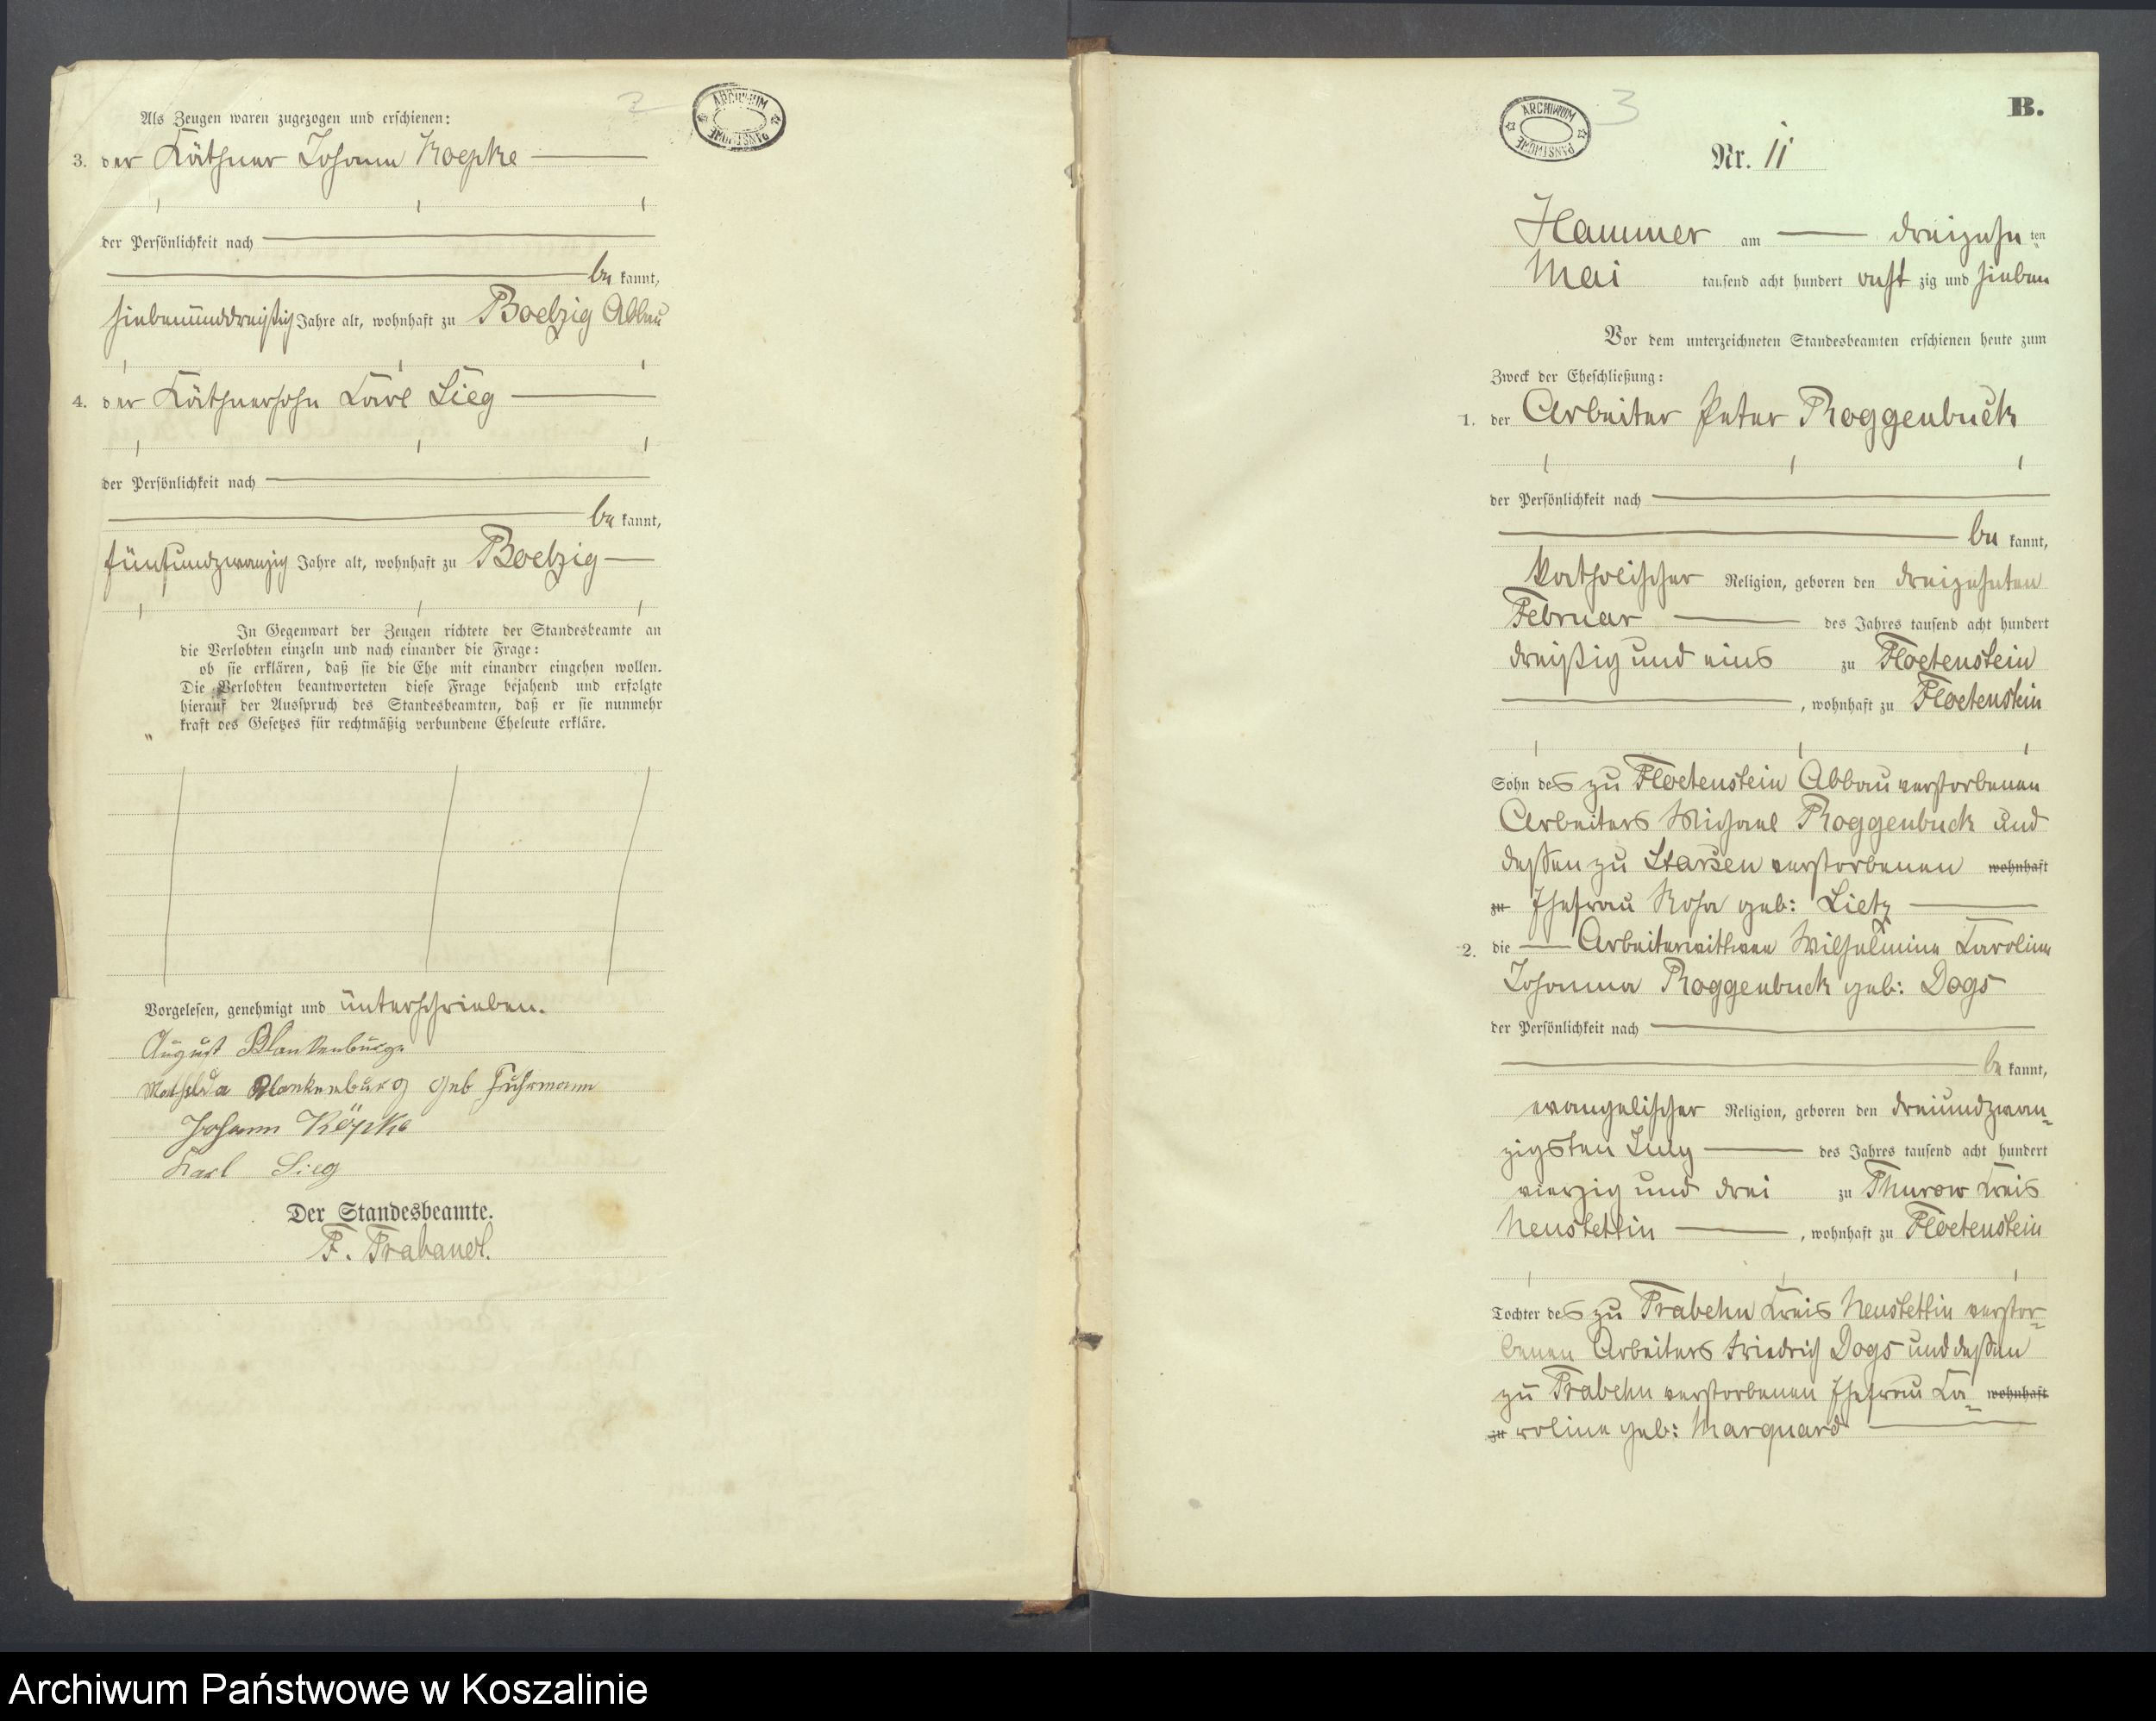 2
ARCHIWUM PAŃSTWOWE
Als Zeugen waren zugezogen und erschienen:
3. der Käthner Johann Koepke
der Persönlichkeit nach
be kannt,
siebenunddreißig Jahre alt, wohnhaft zu Boelzig Abbau
4. der Käthnersohn Karl Sieg
der Persönlichkeit nach
be kannt,
fünfundzwanzig Jahre alt, wohnhaft zu Boelzig
In Gegenwart der Zeugen richtete der Standesbeamte an
die Verlobten einzeln und nach einander die Frage:
ob sie erklären, daß sie die Ehe mit einander eingehen wollen.
Die Verlobten beantworteten diese Frage bejahend und erfolgte
hierauf der Ausspruch des Standesbeamten, daß er sie nunmehr
kraft des Gesetzes für rechtmäßig verbundene Eheleute erkläre.
Vorgelesen, genehmigt und unterschrieben.
August Blankenburg
Mathilda Blankenburg geb Fuhrmann
Johann Köpke
Karl Sieg
Der Standesbeamte.
F. Trabandt.
ARCHIWUM PAŃSTWOWE
3
B.
Nr. 11
Hammer am dreizehn ten
Mai tausend acht hundert acht zig und sieben
Vor dem unterzeichneten Standesbeamten erschienen heute zum
Zweck der Eheschließung:
1. der Arbeiter Peter Roggenbuck
der Persönlichkeit nach
be kannt,
katholischer Religion, geboren den dreizehnten
Februar des Jahres tausend acht hundert
dreißig und eins zu Floetenstein
, wohnhaft zu Floetenstein
Sohn des zu Floetenstein Abbau verstorbenen
Arbeiters Michael Roggenbuck und
dessen zu Starsen verstorbenen wohnhaft
zu Ehefrau Rosa geb: Lietz
2. die Arbeiterwittwe Wilhelmine Karoline
Johanna Roggenbuck geb: Dogs
der Persönlichkeit nach
be kannt,
evangelischer Religion, geboren den dreiundzwan-
zigsten July des Jahres tausend acht hundert
vierzig und drei zu Thurow Kreis
Neustettin , wohnhaft zu Floetenstein
Tochter des zu Trabehn Kreis Neustettin verstor-
benen Arbeiters Friedrich Dogs und dessen
zu Trabehn verstorbenen Ehefrau Ka- wohnhaft
zu roline geb: Marquard
Archiwum Państwowe w Koszalinie